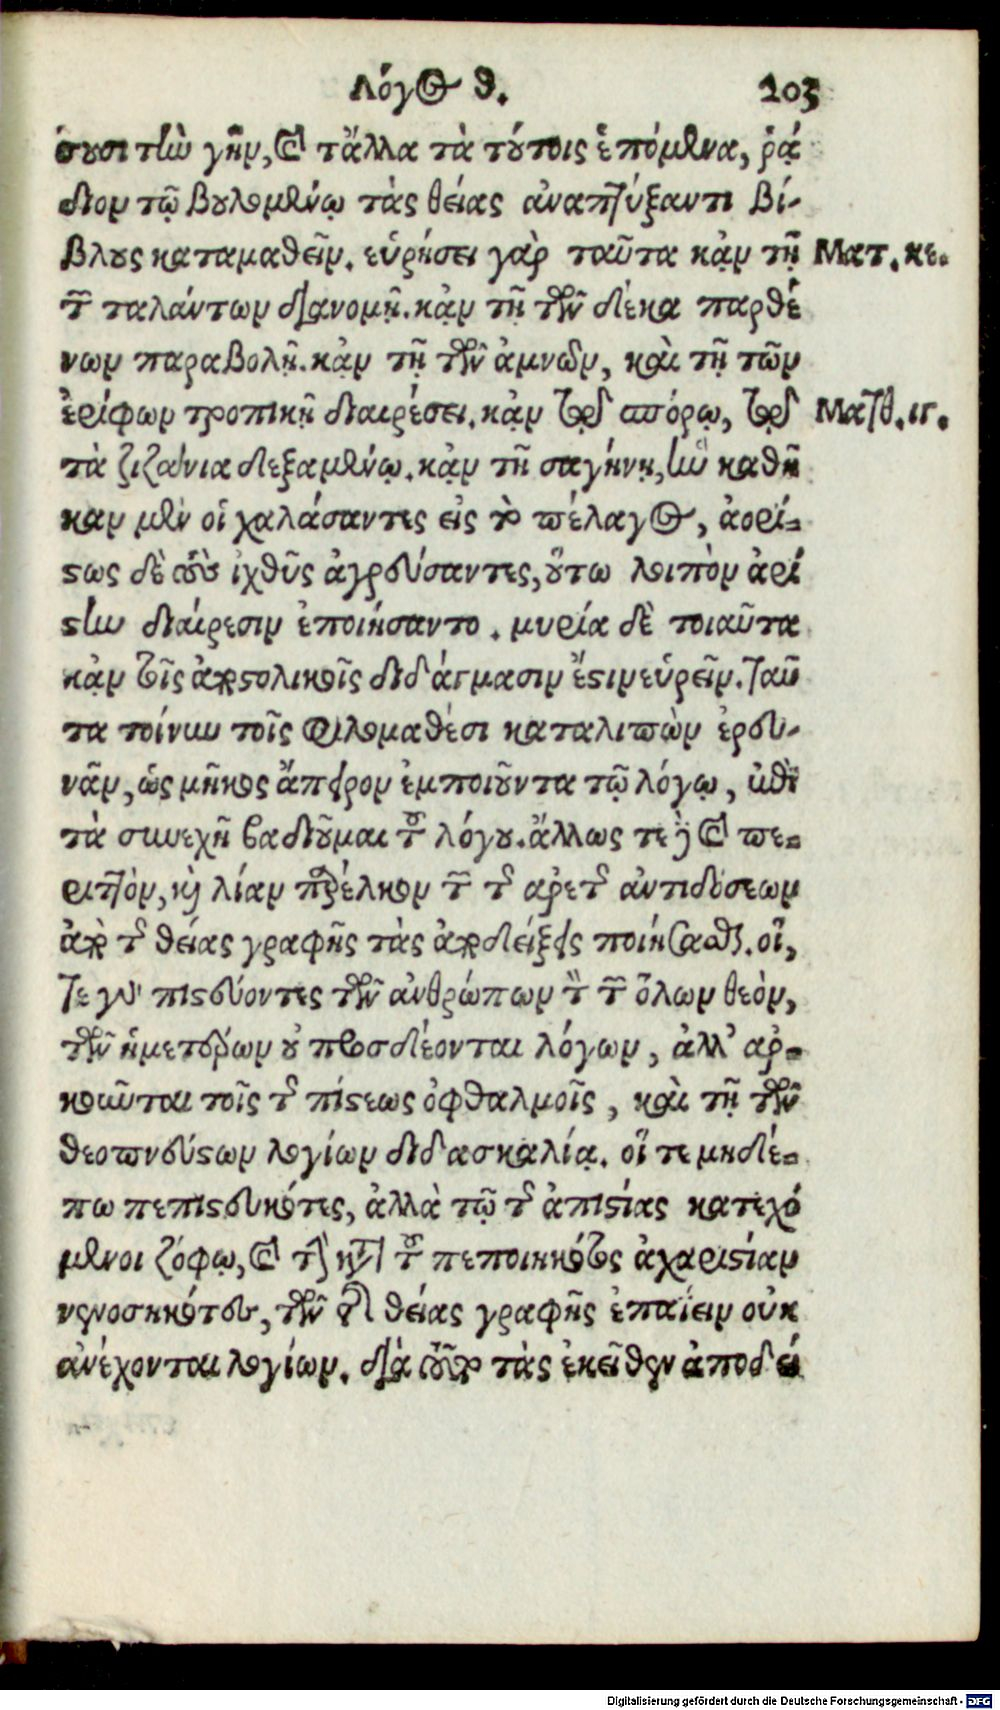 Λόγος θ. 203
σουσι τὴν γῆν, καὶ τἄλλα τὰ τούτοις ἑπόμενα, ῥᾴ
διον τῷ βουλομένῳ τὰς θείας ἀναπτύξαντι βί-
βλους καταμαθεῖν. εὑρήσει γὰρ ταῦτα κᾀν τῇ Ματ. κε.
τῶν ταλάντων διανομῇ. κᾀν τῇ τῶν δέκα παρθέ
νων παραβολῇ. κᾀν τῇ τῶν ἀμνῶν, καὶ τῇ τῶν
ἐρίφων τροπικῇ διαιρέσει. κᾀν τῷ σπόρῳ, τῷ Ματθ. ιγ.
τὰ ζιζάνια δεξαμένῳ. κᾀν τῇ σαγήνῃ, ἣν καθῆ
καν μὲν οἱ χαλάσαντες εἰς τὸ πέλαγος, ἀορί-
στως δὲ τοὺς ἰχθῦς ἀγρεύσαντες, οὕτω λοιπὸν ἀρί
στην διαίρεσιν ἐποιήσαντο. μυρία δὲ τοιαῦτα
κᾀν τοῖς ἀποστολικοῖς διδάγμασιν ἔστιν εὑρεῖν. ταῦ
τα τοίνυν τοῖς φιλομαθέσι καταλιπὼν ἐρευ-
νᾶν, ὡς μῆκος ἄπειρον ἐμποιοῦντα τῷ λόγῳ, ἐπὶ
τὰ συνεχῆ βαδιοῦμαι τοῦ λόγου. ἄλλως τε καὶ πε-
ριττὸν, καὶ λίαν παρέλκον τῶν τῆς ἀρετῆς ἀντιδόσεων
ἀπὸ τῆς θείας γραφῆς τὰς ἀποδείξεις ποιήσασθαι. οἵ,
τε γὰρ πιστεύοντες τῶν ἀνθρώπων τὸν τῶν ὅλων θεὸν,
τῶν ἡμετέρων οὐ προσδέονται λόγων, ἀλλ' ἀρ-
κοῦνται τοῖς τῆς πίστεως ὀφθαλμοῖς, καὶ τῇ τῶν
θεοπνεύστων λογίων διδασκαλίᾳ. οἵ τε μηδέ-
πω πεπιστευκότες, ἀλλὰ τῷ τῆς ἀπιστίας κατεχό
μενοι ζόφῳ, καὶ τὴν κατὰ τοῦ πεποιηκότος ἀχαριστίαν
νενοσηκότες, τῶν ἀπὸ θείας γραφῆς ἐπαΐειν οὐκ
ἀνέχονται λογίων. διὰ τοῦτο τὰς ἐκεῖθεν ἀποδεί
Digitalisierung gefördert durch die Deutsche Forschungsgemeinschaft - DFG